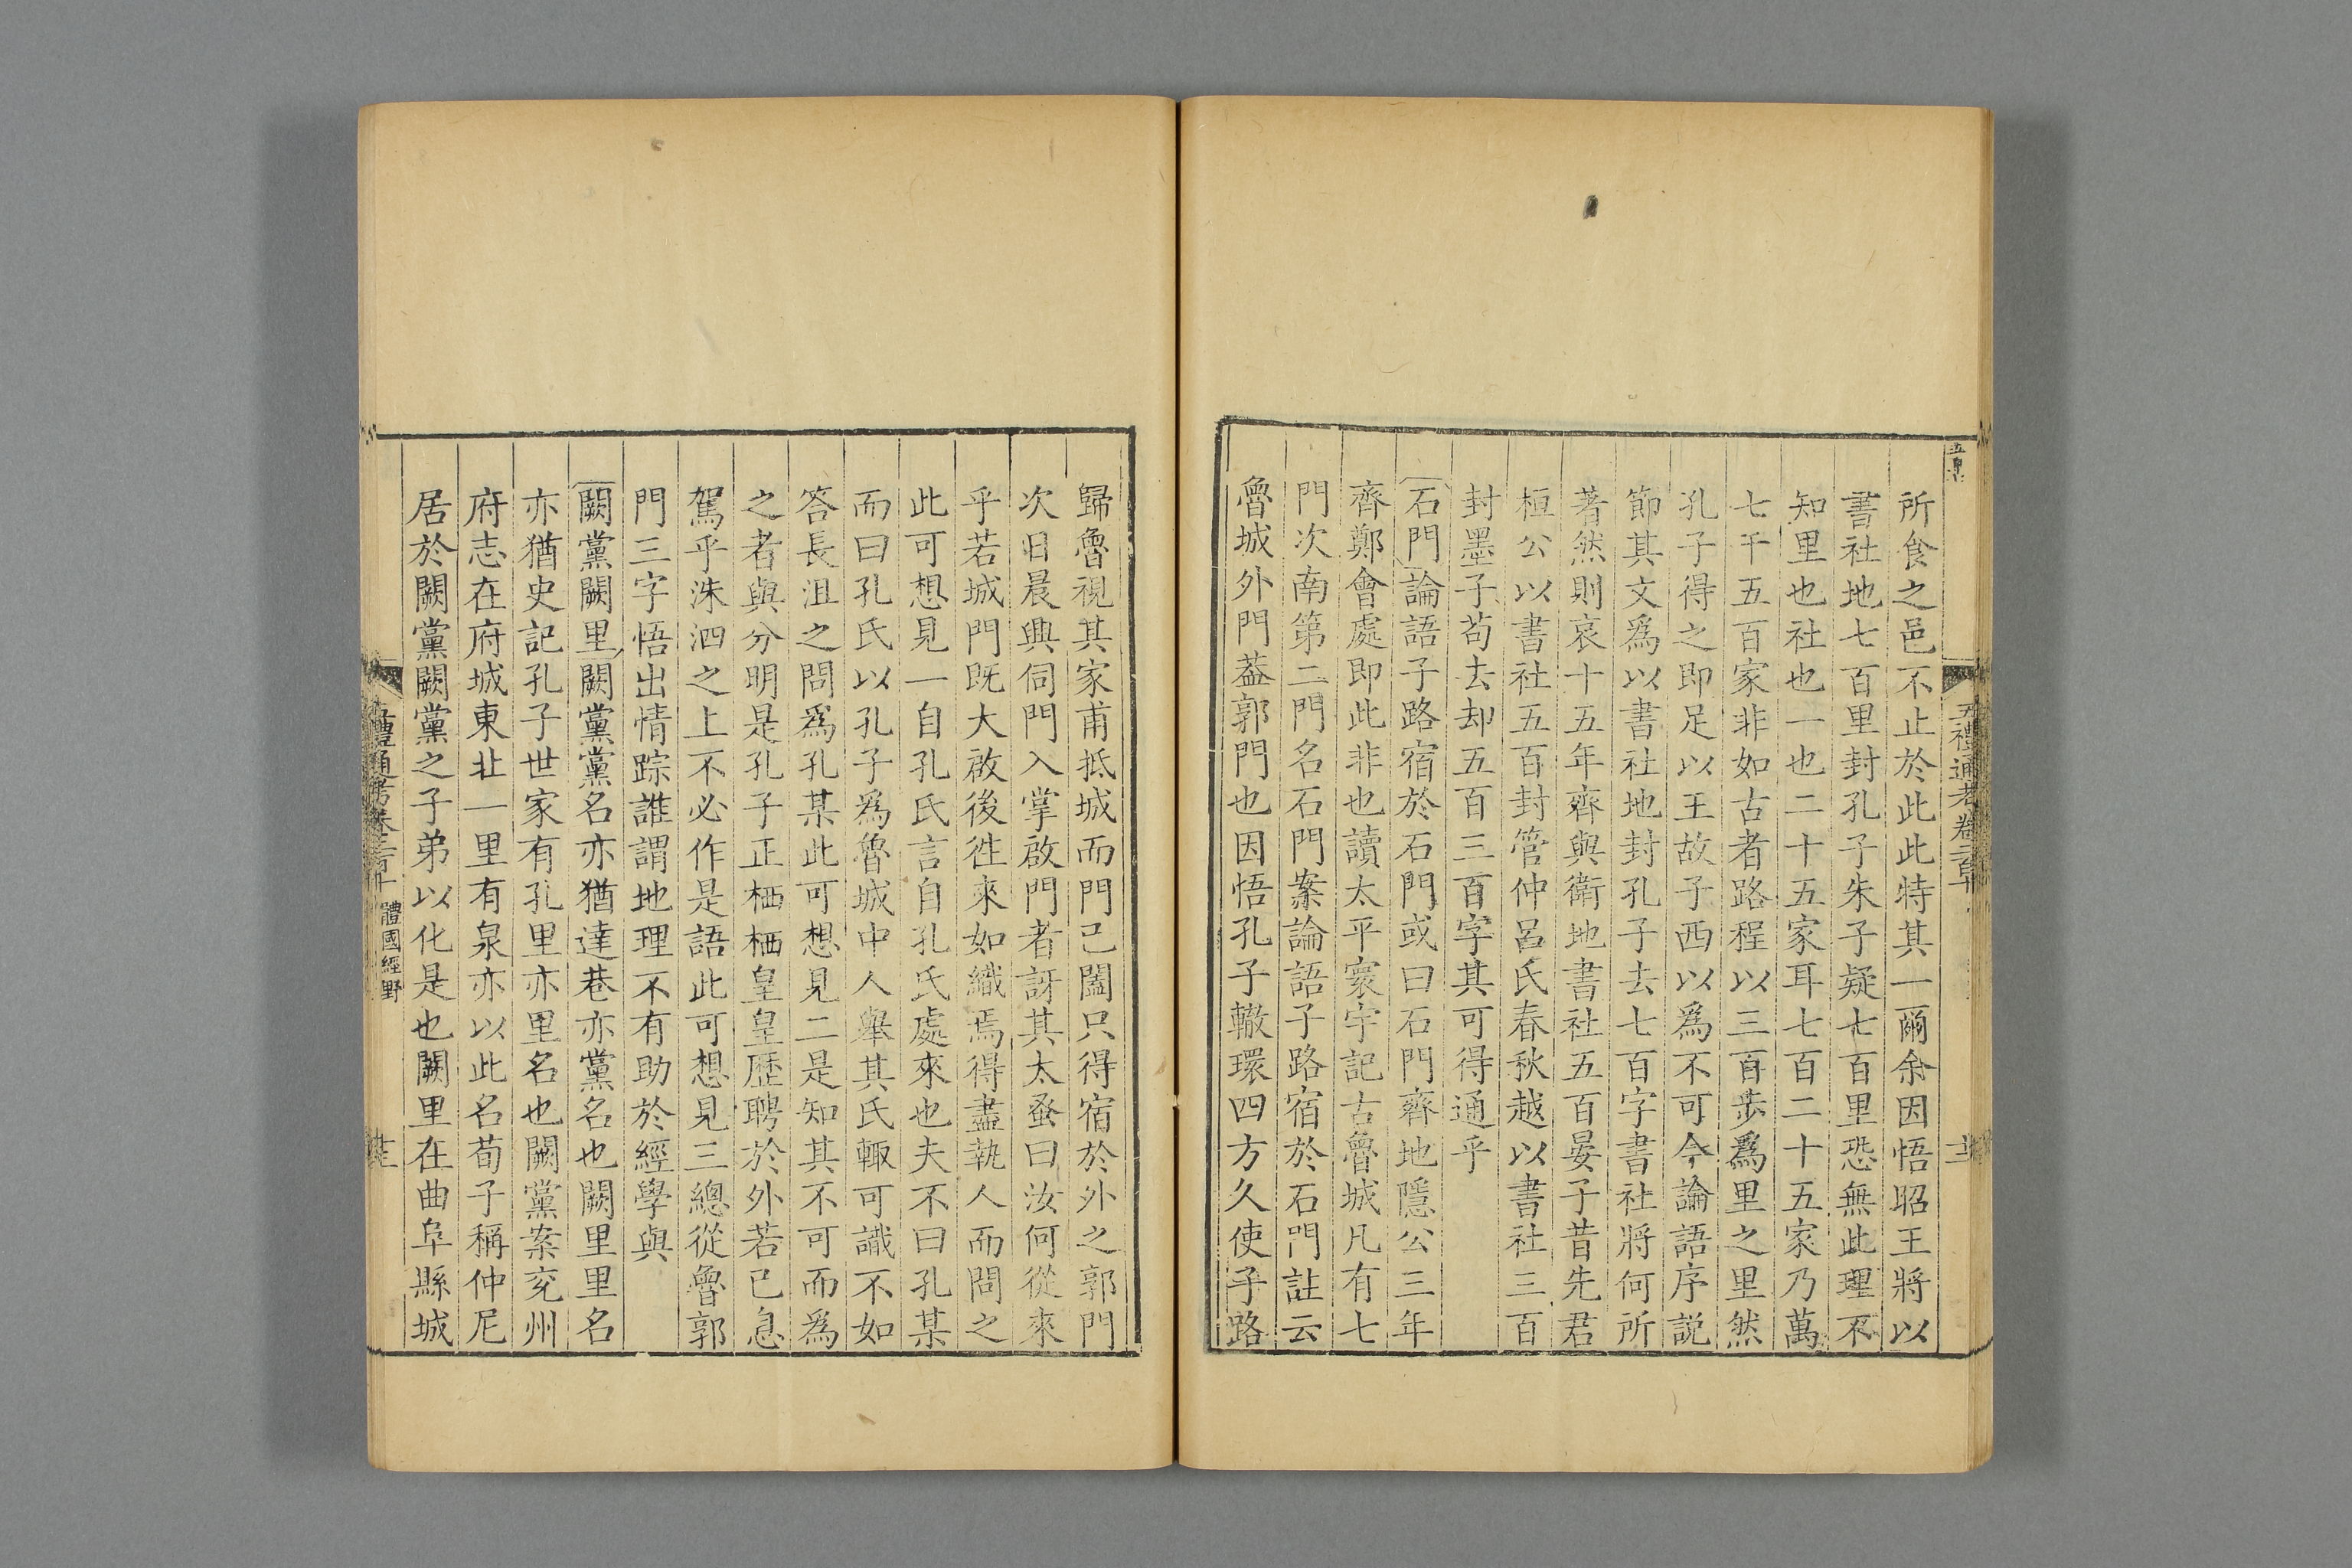 五禮通考卷二百十
所食之邑不止於此此特其一爾余因悟昭王將以
書社地七百里封孔子朱子疑七百里恐無此理不
知里也社也一也二十五家耳七百二十五家乃萬
七千五百家非如古者路程以三百步爲里之里然
孔子得之即足以王故子西以爲不可今論語序説
節其文爲以書社地封孔子去七百字書社將何所
著然則哀十五年齊與衛地書社五百晏子昔先君
桓公以書社五百封管仲呂氏春秋越以書社三百
封墨子苟去却五百三百字其可得通乎
石門論語子路宿於石門或曰石門齊地隱公三年
齊鄭會處即此非也讀太平寰宇記古魯城凡有七
門次南第二門名石門案論語子路宿於石門註云
魯城外門葢郭門也因悟孔子轍環四方久使子路
歸魯視其家甫抵城而門已闔只得宿於外之郭門
次日晨興伺門入掌啟門者訝其太蚤曰汝何從來
乎若城門既大啟後徃來如織焉得盡執人而問之
此可想見一自孔氏言自孔氏處來也夫不曰孔某
而曰孔氏以孔子爲魯城中人舉其氏輙可識不如
答長沮之問爲孔某此可想見二是知其不可而爲
之者與分明是孔子正栖栖皇皇歷聘於外若已息
駕乎洙泗之上不必作是語此可想見三總從魯郭
門三字悟出情踪誰謂地理不有助於經學與
闕黨闕里闕黨黨名亦猶達巷亦黨名也闕里里名
亦猶史記孔子世家有孔里亦里名也闕黨案兖州
府志在府城東北一里有泉亦以此名荀子稱仲尼
居於闕黨闕黨之子弟以化是也闕里在曲阜縣城
五禮通考卷二百十 體國經野